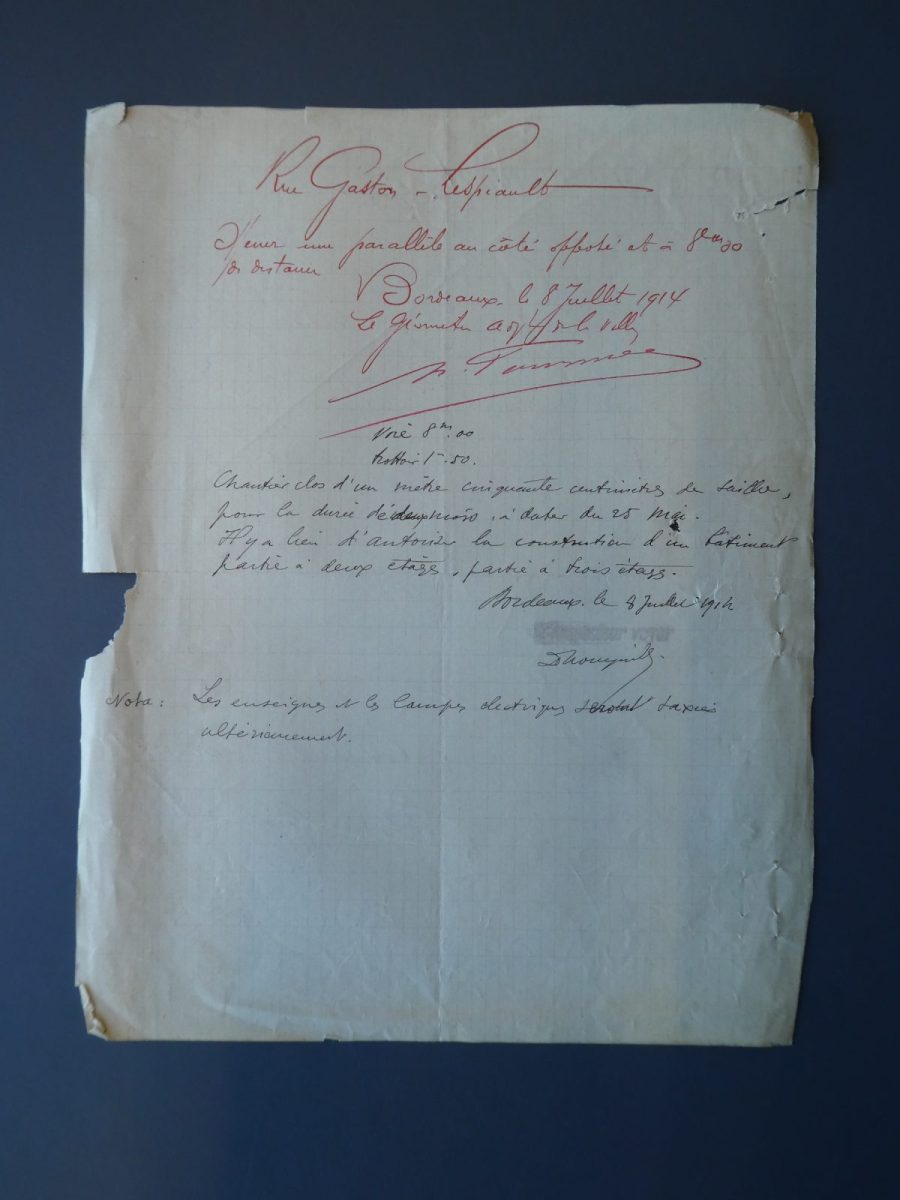 Rue Gaston-Lespiault
Mener une parallèle au côté opposé et à 8m00
de distance
Bordeaux, le 8 Juillet 1914
Le Géomètre adjt de la Ville
Voie 8m.00
trottoir 1m.50.
Chantier clos d'un mètre cinquante centimètres de saillie,
pour la durée de deux mois, à dater du 25 mai.
Il y a lieu d'autoriser la construction d'un bâtiment
partie à deux étages, partie à trois étages.
Bordeaux, le 8 Juillet 1914
voyer
Nota: Les enseignes et les lampes électriques seront taxées
ultérieurement.